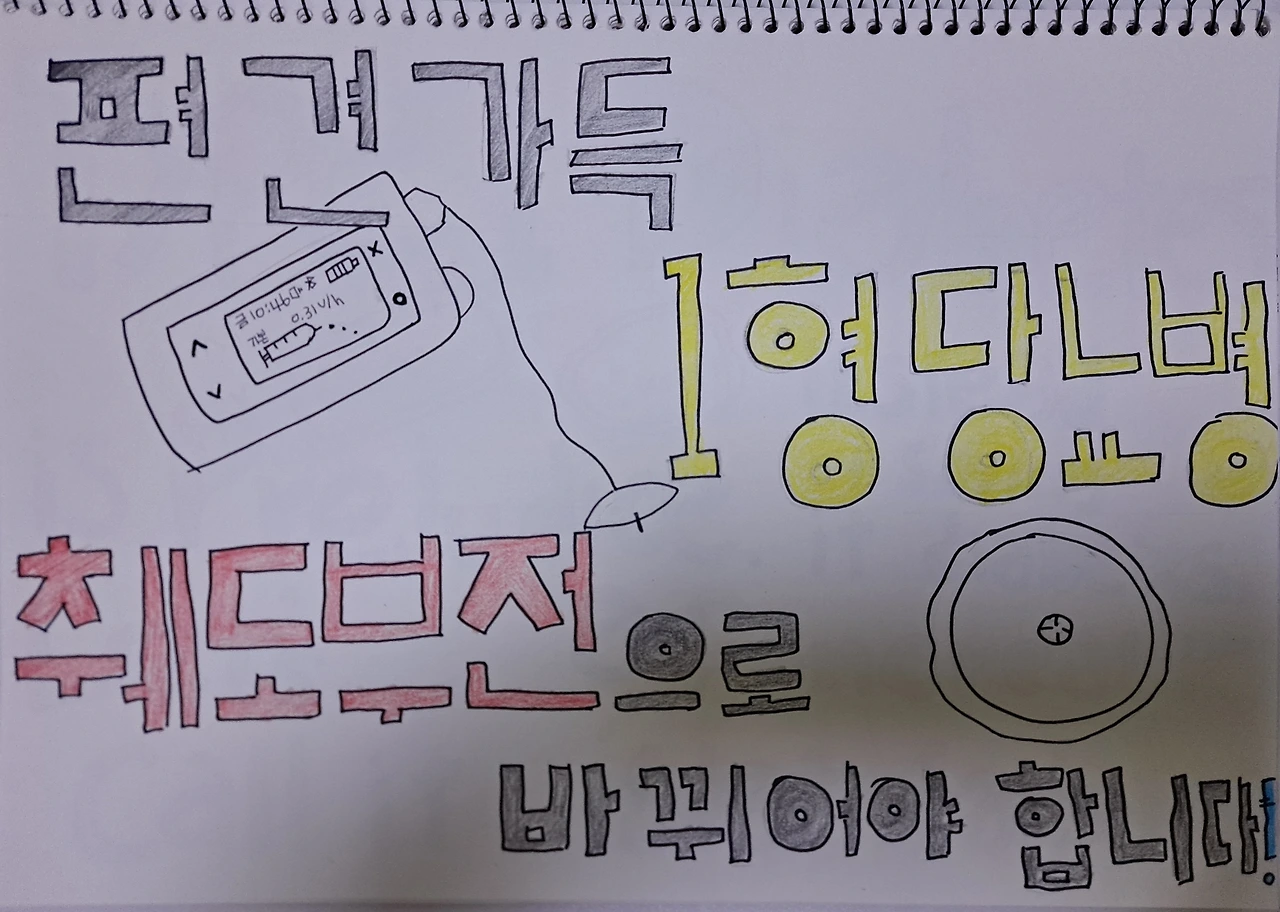 편견 가득
10:49
0.31U/h
기본
1형 당뇨병
췌도부전으로
바뀌어야 합니다!